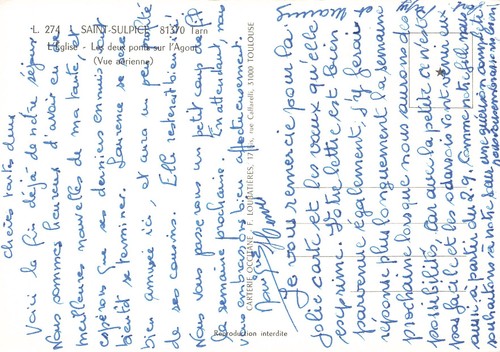 L. 274 SAINT-SULPICE 81370 Tarn
L'Église - Les deux ponts sur l'Agout
(Vue aérienne)
CARTERIE OCCITANE - F. LOUBATIERES, rue Caffarelli, 31000 TOULOUSE
Reproduction interdite
chères toutes deux
Voici la fin déjà de notre séjour.
Nous sommes heureux d'avoir eu de
meilleures nouvelles de ma tante, et
espérons que ses derniers ennuis vont
bientôt se terminer. Laurence se sera
bien amusée ici, et aura un peu profité
de ses cousins. Elle resterait bien !
Nous vous passerons un petit coup de fil
la semaine prochaine. En attendant, nous
vous embrassons bien affectueusement.
Je vous remercie pour la
jolie carte et les vœux qu'elle
exprime. Votre lettre est bien
parvenue également, j'y ferai
réponse plus longuement la semaine
prochaine lorsque nous aurons des
possibilités, car avec la petite ce n'est
pas facile et les
aussi à partir du 2.9. Comme notre fils nous
souhaitons à notre